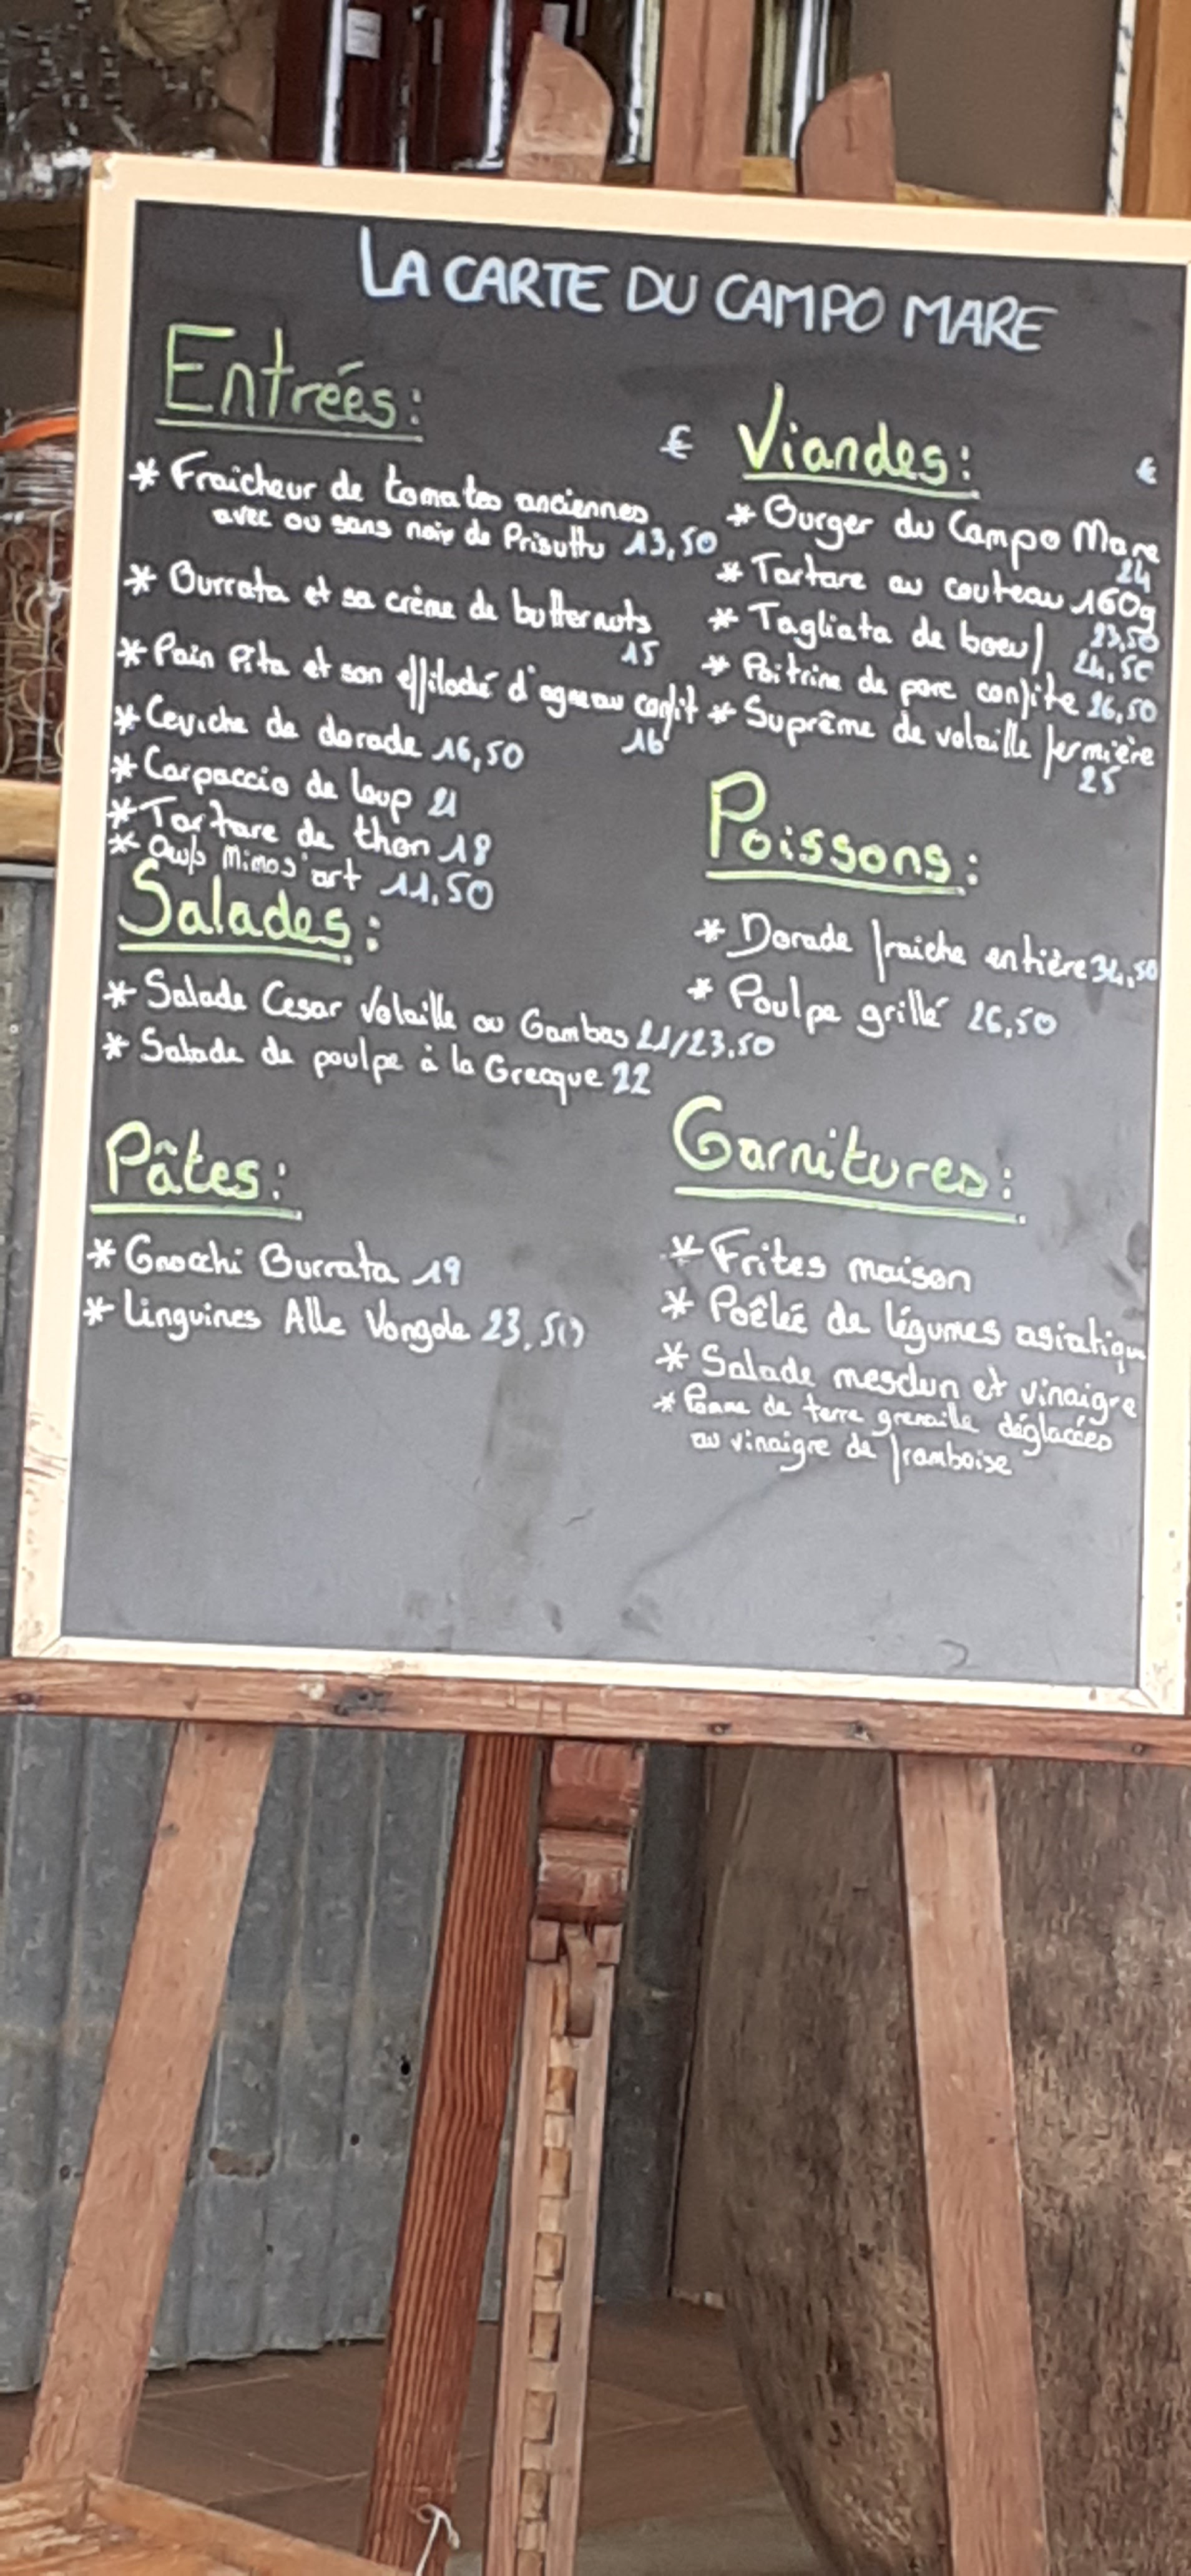 LA CARTE DU CAMPO MARE
Entrées:
€
* Fraicheur de tomates anciennes
avec ou sans noix de Prisuttu 13,50
* Burrata et sa crème de butternuts
15
* Pain Pita et son effiloché d'agneau confit
16
* Ceviche de dorade 16,50
* Carpaccio de loup 21
* Tartare de thon 18
* Oeufs Mimos'art 11,50
Salades:
* Salade Cesar Volaille ou Gambas 21/23.50
* Salade de poulpe à la Grecque 22
Pâtes:
* Gnocchi Burrata 19
* Linguines Alle Vongole 23,50
Viandes:
€
* Burger du Campo Mare
24
* Tartare au couteau 160g
23,50
* Tagliata de boeuf
24,50
* Poitrine de porc confite 26,50
* Suprême de volaille fermière
25
Poissons:
* Dorade fraiche entière 34,50
* Poulpe grillé 26,50
Garnitures:
* Frites maison
* Poêlée de légumes asiatiqu
* Salade mesclun et vinaigre
* Pomme de terre grenaille déglacées
au vinaigre de framboise